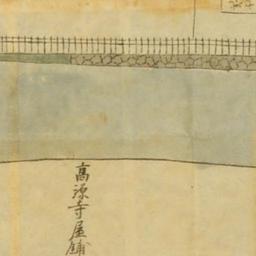 高源寺屋舗